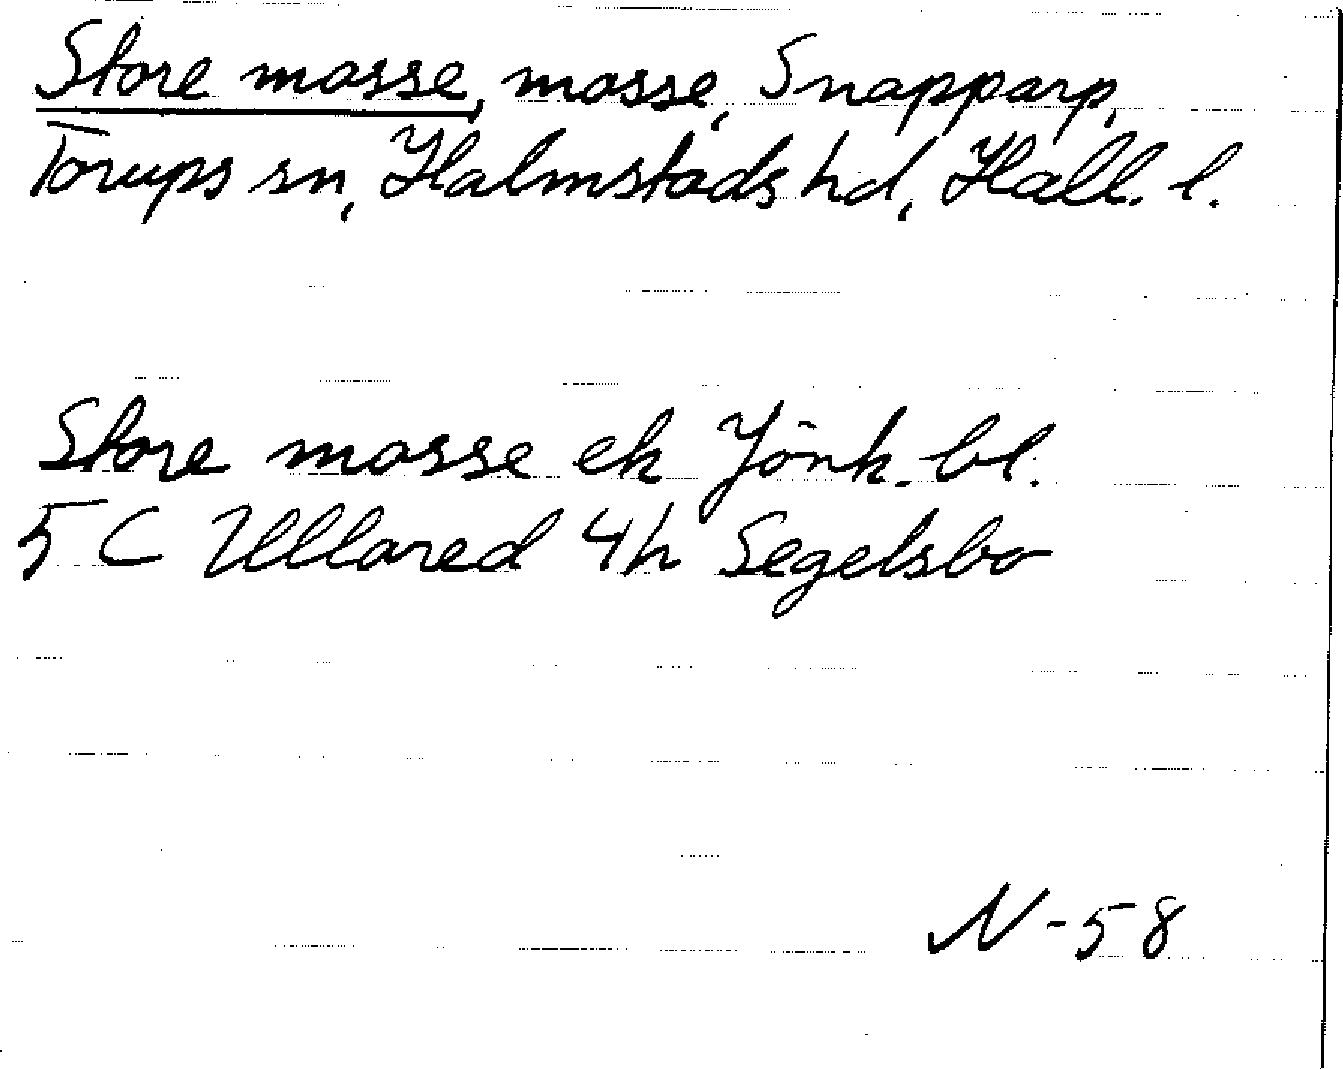 Store mosse, mosse, Snapparp,
Torups sn, Halmstads hd, Hall. l.
Store mosse ek Jönk. bl.
5 C Ullared 4h Segelsbo
N-58